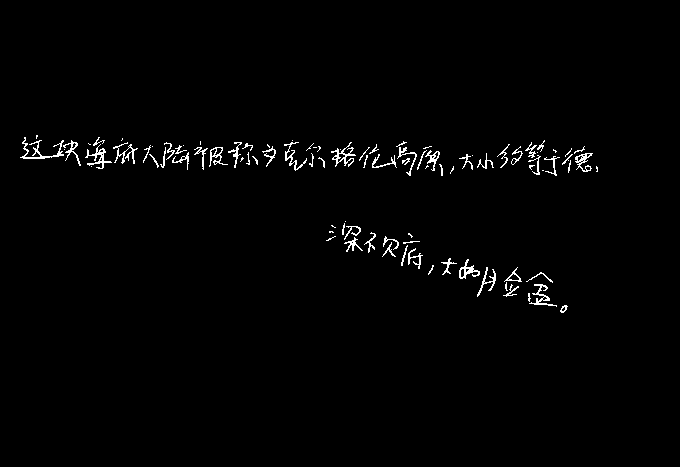 这块海底大陆被称为克尔格伦高原,大小约等于德、
深不见府,大